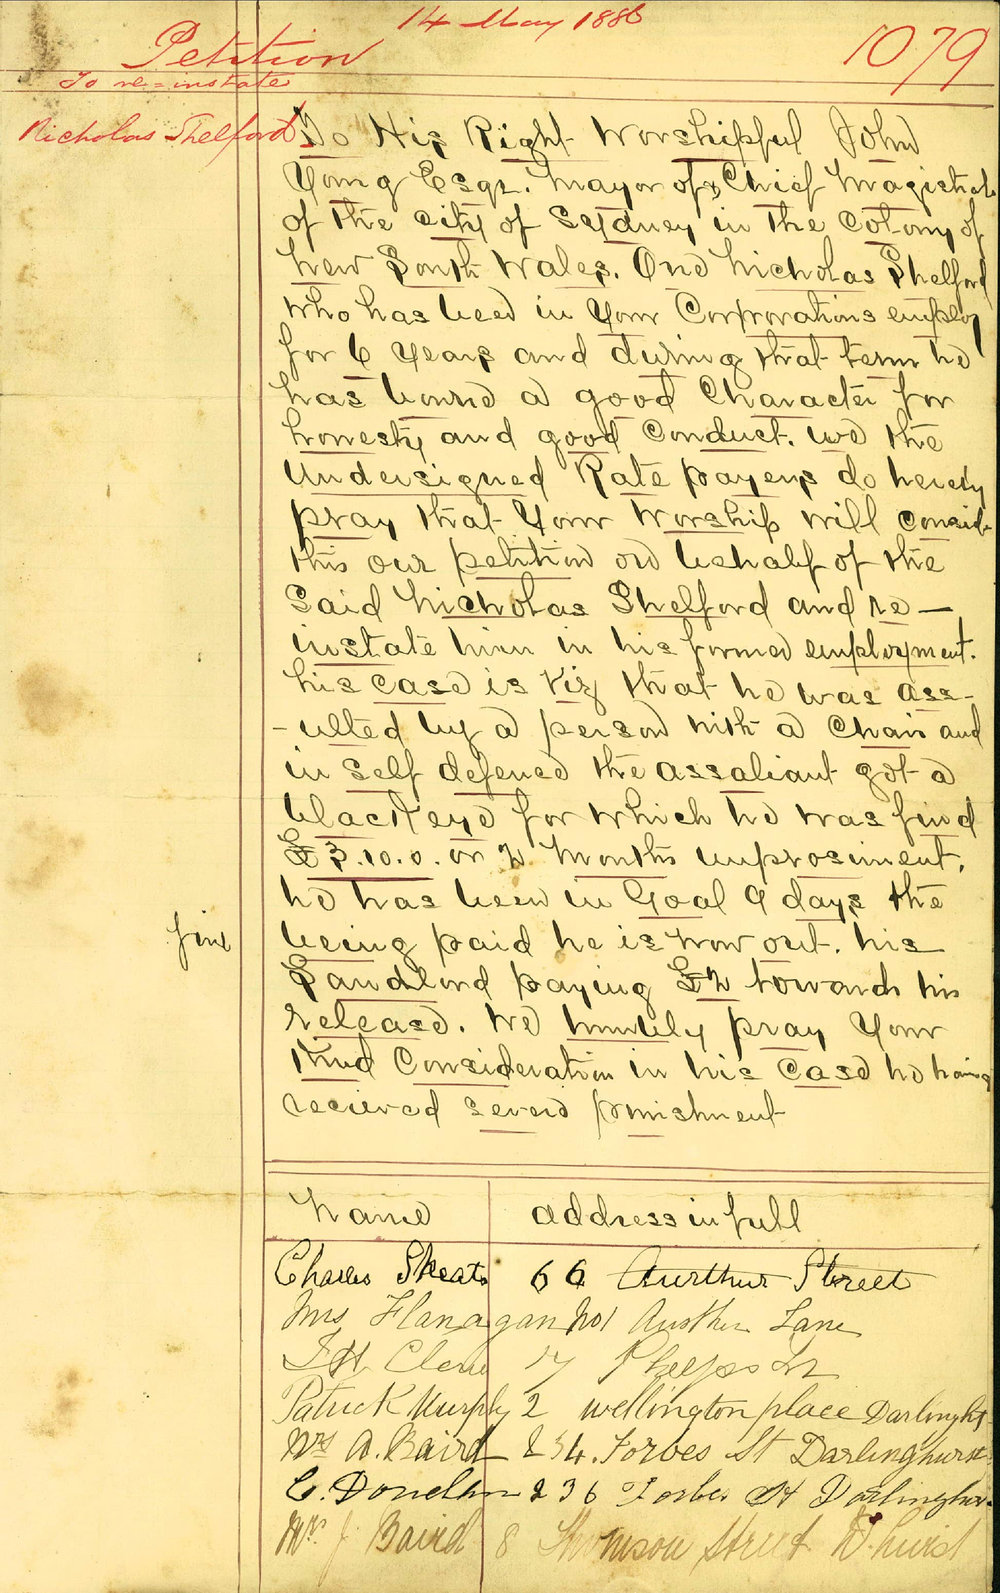 14 May 1886
1079
Petition
To re=instate
Nicholas Shelford
To His Right Worshipful John
Young Esqr. Mayor of & Chief Magistrate
of the city of Sydney in the Colony of
New South Wales. One Nicholas Shelford
who has been in Your Corporations employ
for 6 Years and during that term he
has borne a good Character for
honesty and good Conduct. we the
Undersigned Rate payers do hereby
pray that Your Worship will consider
this our petition on behalf of the
Said Nicholas Shelford and re—
instate him in his former employment.
his case is Viz that he was ass-
-ulted by a person with a Chair and
in self defence the assaliant got a
black eye for which he was fined
£3.10.0. or 2 Months improsiment.
he has been in Goal 9 days the
fine
being paid he is now out. his
Landlord paying £2 towards his
release. We humbly pray Your
Kind Consideration in his Case he having
recieved severe punishment
Name address in full
Charles Skeats 66 Aurthur Street
Mrs Flanagan No1 Aurthur Lane
17 Phelps St
Patrick Murphy 2 wellington place Darlinght
Mrs A. Baird 234. Forbes St Darlinghurst
C. Donellan 236 Forbes St Darlinghurst
Mrs J Baird 8 Thomson Street D.hurst